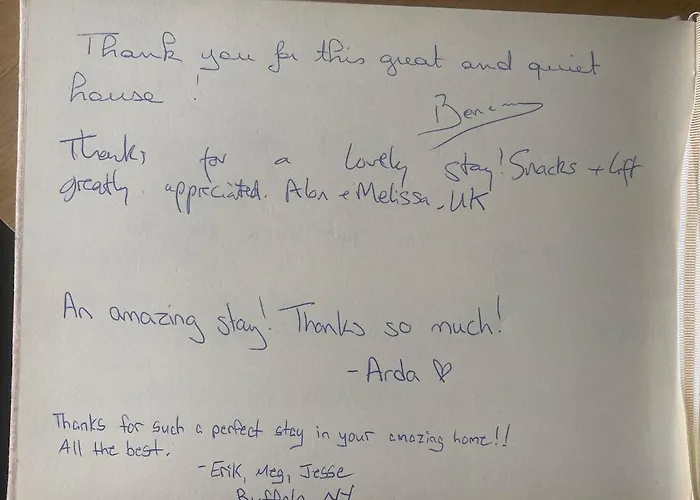 Thank you for this great and quiet
house !
Thanks for a lovely stay! Snacks + lift
greatly appreciated. Alan + Melissa, UK
An amazing stay! Thanks so much!
- Arda ♡
Thanks for such a perfect stay in your amazing home!!
All the best.
- Erik, Meg, Jesse
Buffalo, NY